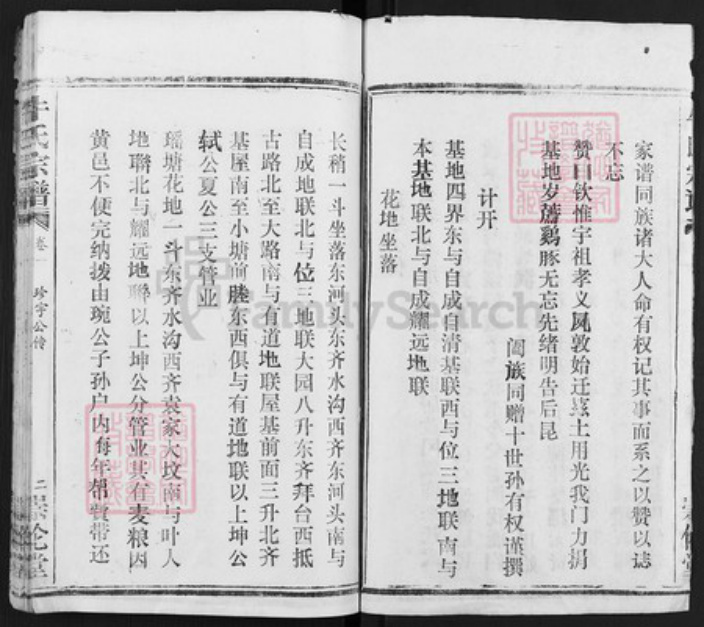 家谱同族诸大人命有权记其事而系之以赞以誌
不忘
赞曰钦惟宇祖孝义夙敦始迁兹土用光我门力捐
基地岁荐鸡豚无忘先绪明告后昆
阖族同赠十世孙有权谨撰
计开
基地四界东与自成自清基联西与位三地联南与
本基地联北与自成耀远地联
花地坐落
长稍一斗坐落东河头东齐水沟西齐东河头南与
自成地联北与位三地联大园八升东齐拜台西抵
古路北至大路南与有道地联屋基前面三升北齐
基屋南至小塘前塍东西俱与有道地联以上坤公
轼公夏公三支管业
瑶塘花地一斗东齐水沟西齐袁家大坟南与叶人
地联北与耀远地联以上坤公分管业其有麦粮因
黄邑不便完纳拨由琬公子孙户内每年帮费带还
氏宗谱
卷一
珍宇公传
二
FamilySearch